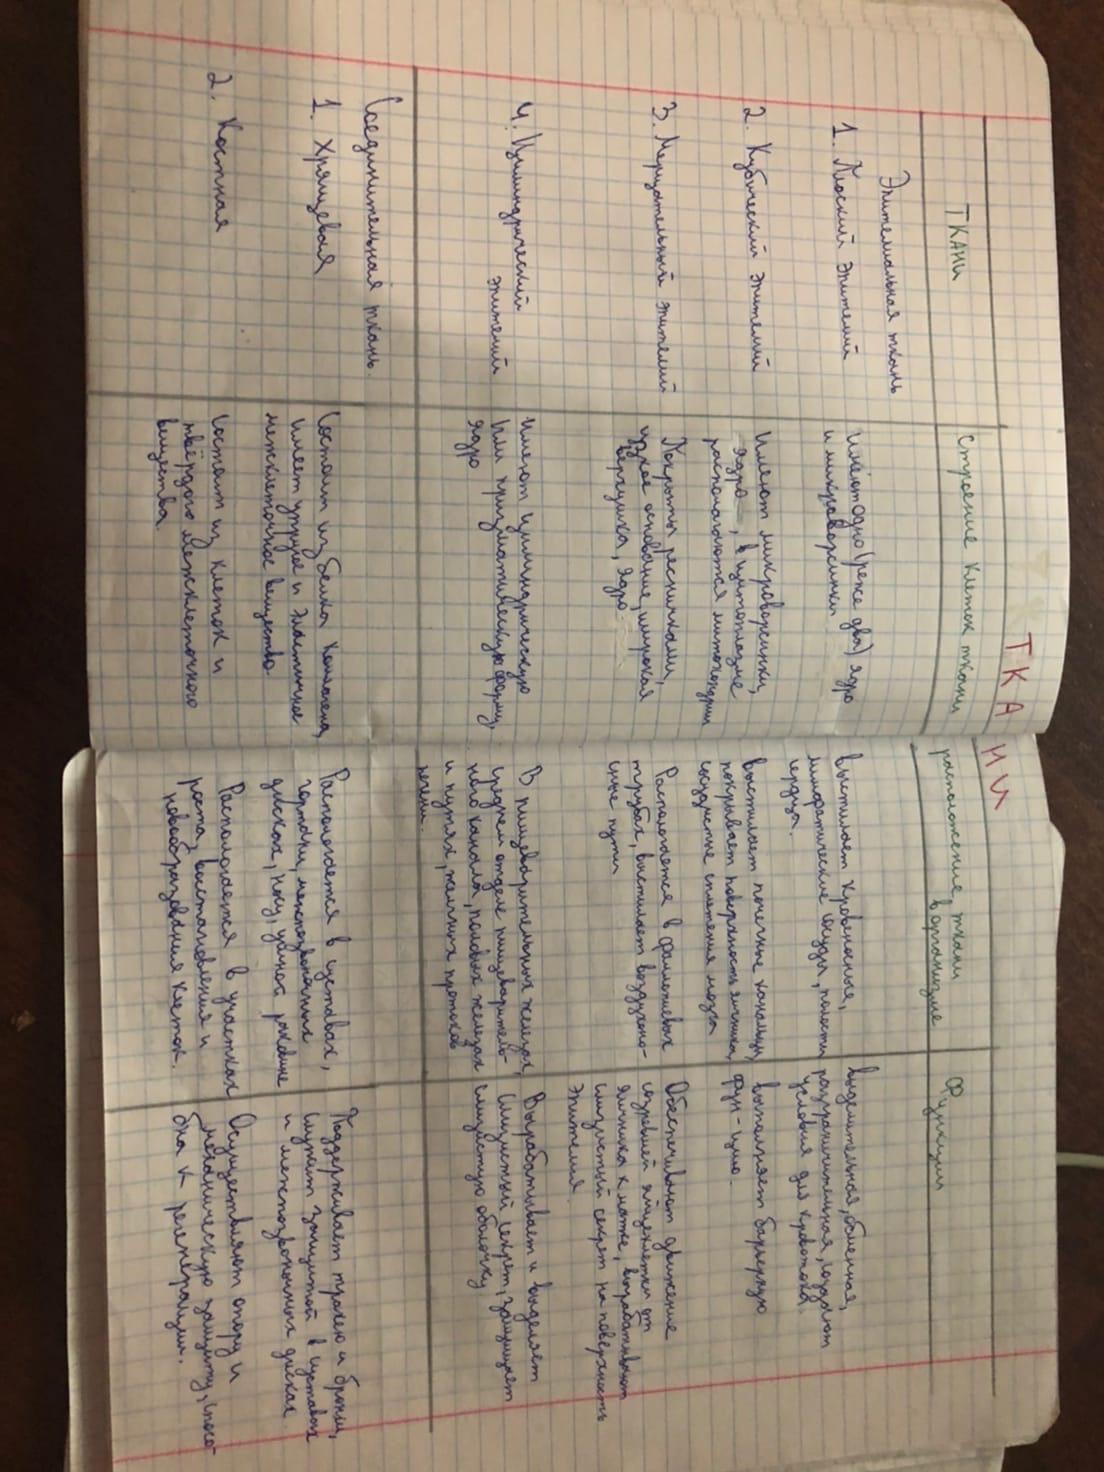 ТКАНИ
ткани
строение клеток ткани
расположение ткани
в организме
Функции
Эпителиальная ткань
1. Плоский эпителий
Имеют одно (реже два) ядро
и микроворсинки
выстилает кровеносные,
лимфатические сосуды, полости
сердца.
выделительная, обменная,
разграничительная, создают
условия для кровотока.
2. Кубический эпителий
Имеют микроворсинки,
ядро, в цитоплазме
располагаются митохондрии
выстилает почечные канальцы,
покрывает поверхность яичника,
сосудистые сплетения мозга
выполняет барьерную
фун-цию.
3. Мерцательный эпителий
Покрыты ресничками,
узкое основание, широкая
верхушка, ядро
Располагается в фаллопиевых
трубах, выстилает воздухоно-
сные пути
Обеспечивают движение
созревшей яйцеклетки от
яичника к матке, вырабатывают
слизистый секрет на поверхность
эпителия.
4. Цилиндрический
эпителий
Имеют цилиндрическую
или призматическую форму,
ядро
В пищеварительных железах,
среднем отделе пищеваритель-
ного канала, половых железах
и путях, желчных протоках
печени.
Вырабатывает и выделяет
слизистый секрет, защищает
слизистую оболочку
Соединительная ткань
1. Хрящевая
Состоит из белка коллагена,
имеет упругое и эластичное
межклеточное вещество
Располагается в суставах,
гортани, межпозвоночные
дисках, носу, ушной раковине
Поддерживает трахею и бронхи,
служит защитой в суставах
и межпозвоночных дисках
2. Костная
Состоит из клеток и
твёрдого межклеточного
вещества.
Располагается в участках
роста, восстановления и
новообразования клеток.
Осуществляют опору и
механическую защиту, спосо-
бна к регенерации.